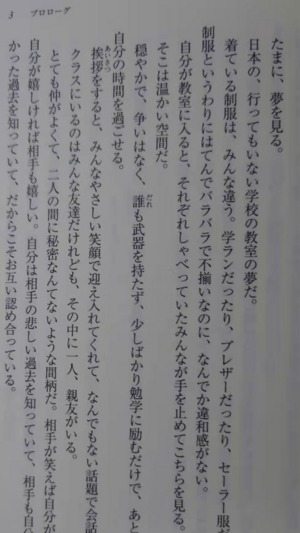 3 プロローグ
たまに、夢を見る。
日本の、行ってもいない学校の教室の夢だ。
着ている制服は、みんな違う。学ランだったり、ブレザーだったり、セーラー服だ
制服というわりにはてんでバラバラで不揃いなのに、なんでか違和感がない。
自分が教室に入ると、それぞれしゃべっていたみんなが手を止めてこちらを見る。
そこは温かい空間だ。
穏やかで、争いはなく、誰も武器を持たず、少しばかり勉学に励むだけで、あと
自分の時間を過ごせる。
挨拶をすると、みんなやさしい笑顔で迎え入れてくれて、なんでもない話題で会話
クラスにいるのはみんな友達だけれども、その中に一人、親友がいる。
とても仲がよくて、二人の間に秘密なんてないような間柄だ。相手が笑えば自分が
自分が嬉しければ相手も嬉しい。自分は相手の悲しい過去を知っていて、相手も自分
かった過去を知っていて、だからこそお互い認め合っている。